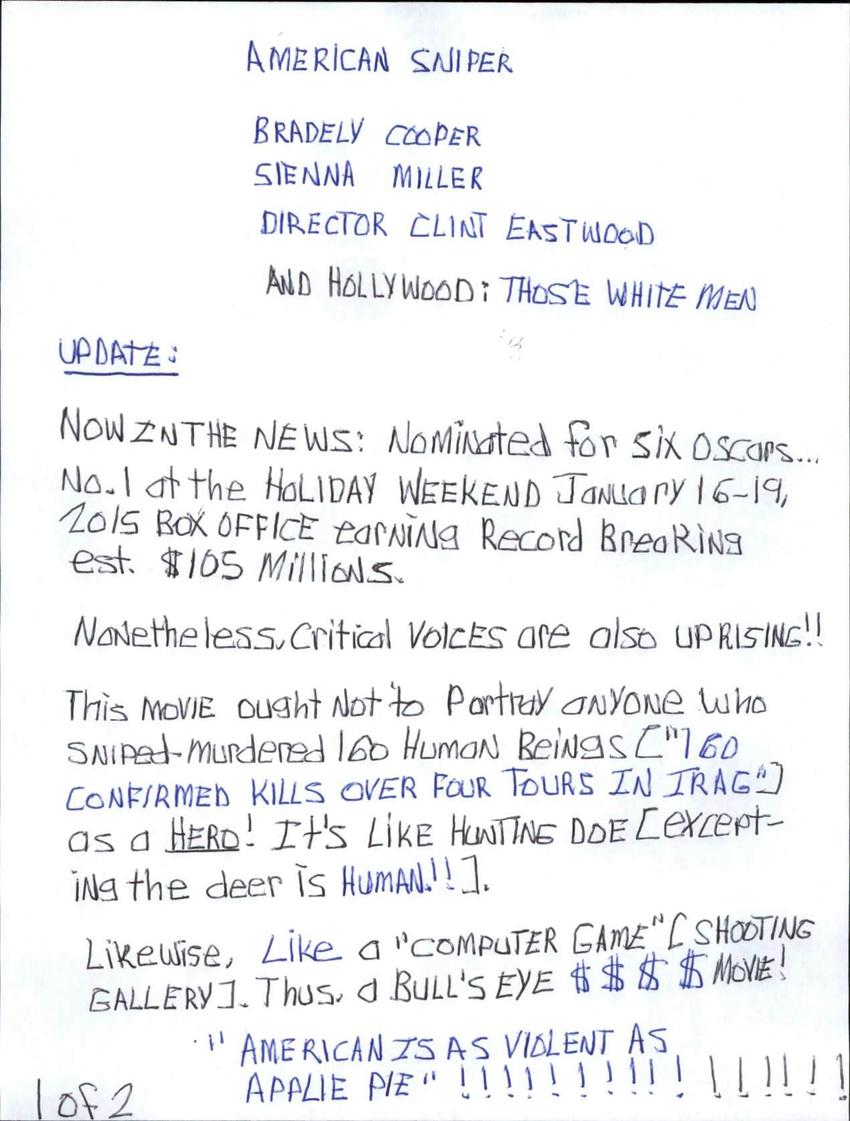 AMERICAN SNIPER
BRADELY COOPER
SIENNA MILLER
DIRECTOR CLINT EASTWOOD
AND HOLLYWOOD: THOSE WHITE MEN
UPDATE:
NOW IN THE NEWS: Nominated for six oscars...
No.1 at the HOLIDAY WEEKEND January 16-19,
2015 BOX OFFICE earning Record Breaking
est. $105 Millions.
Nonetheless, Critical VOICES are also UPRISING!!
This MOVIE ought Not to Portray anyone who
sniped-murdered 160 Human Beings ["160
CONFIRMED KILLS OVER FOUR TOURS IN IRAG"]
as a HERO! It's LIKE HUNTING DOE [except-
ing the deer is HUMAN!!].
Likewise, Like a "COMPUTER GAME" [SHOOTING
GALLERY]. Thus, a BULL'S EYE $ $ $ $ MOVIE!
"AMERICAN IS AS VIOLENT AS
APPLIE PIE" !!!!!!!!!!!!!!!!!
1 of 2